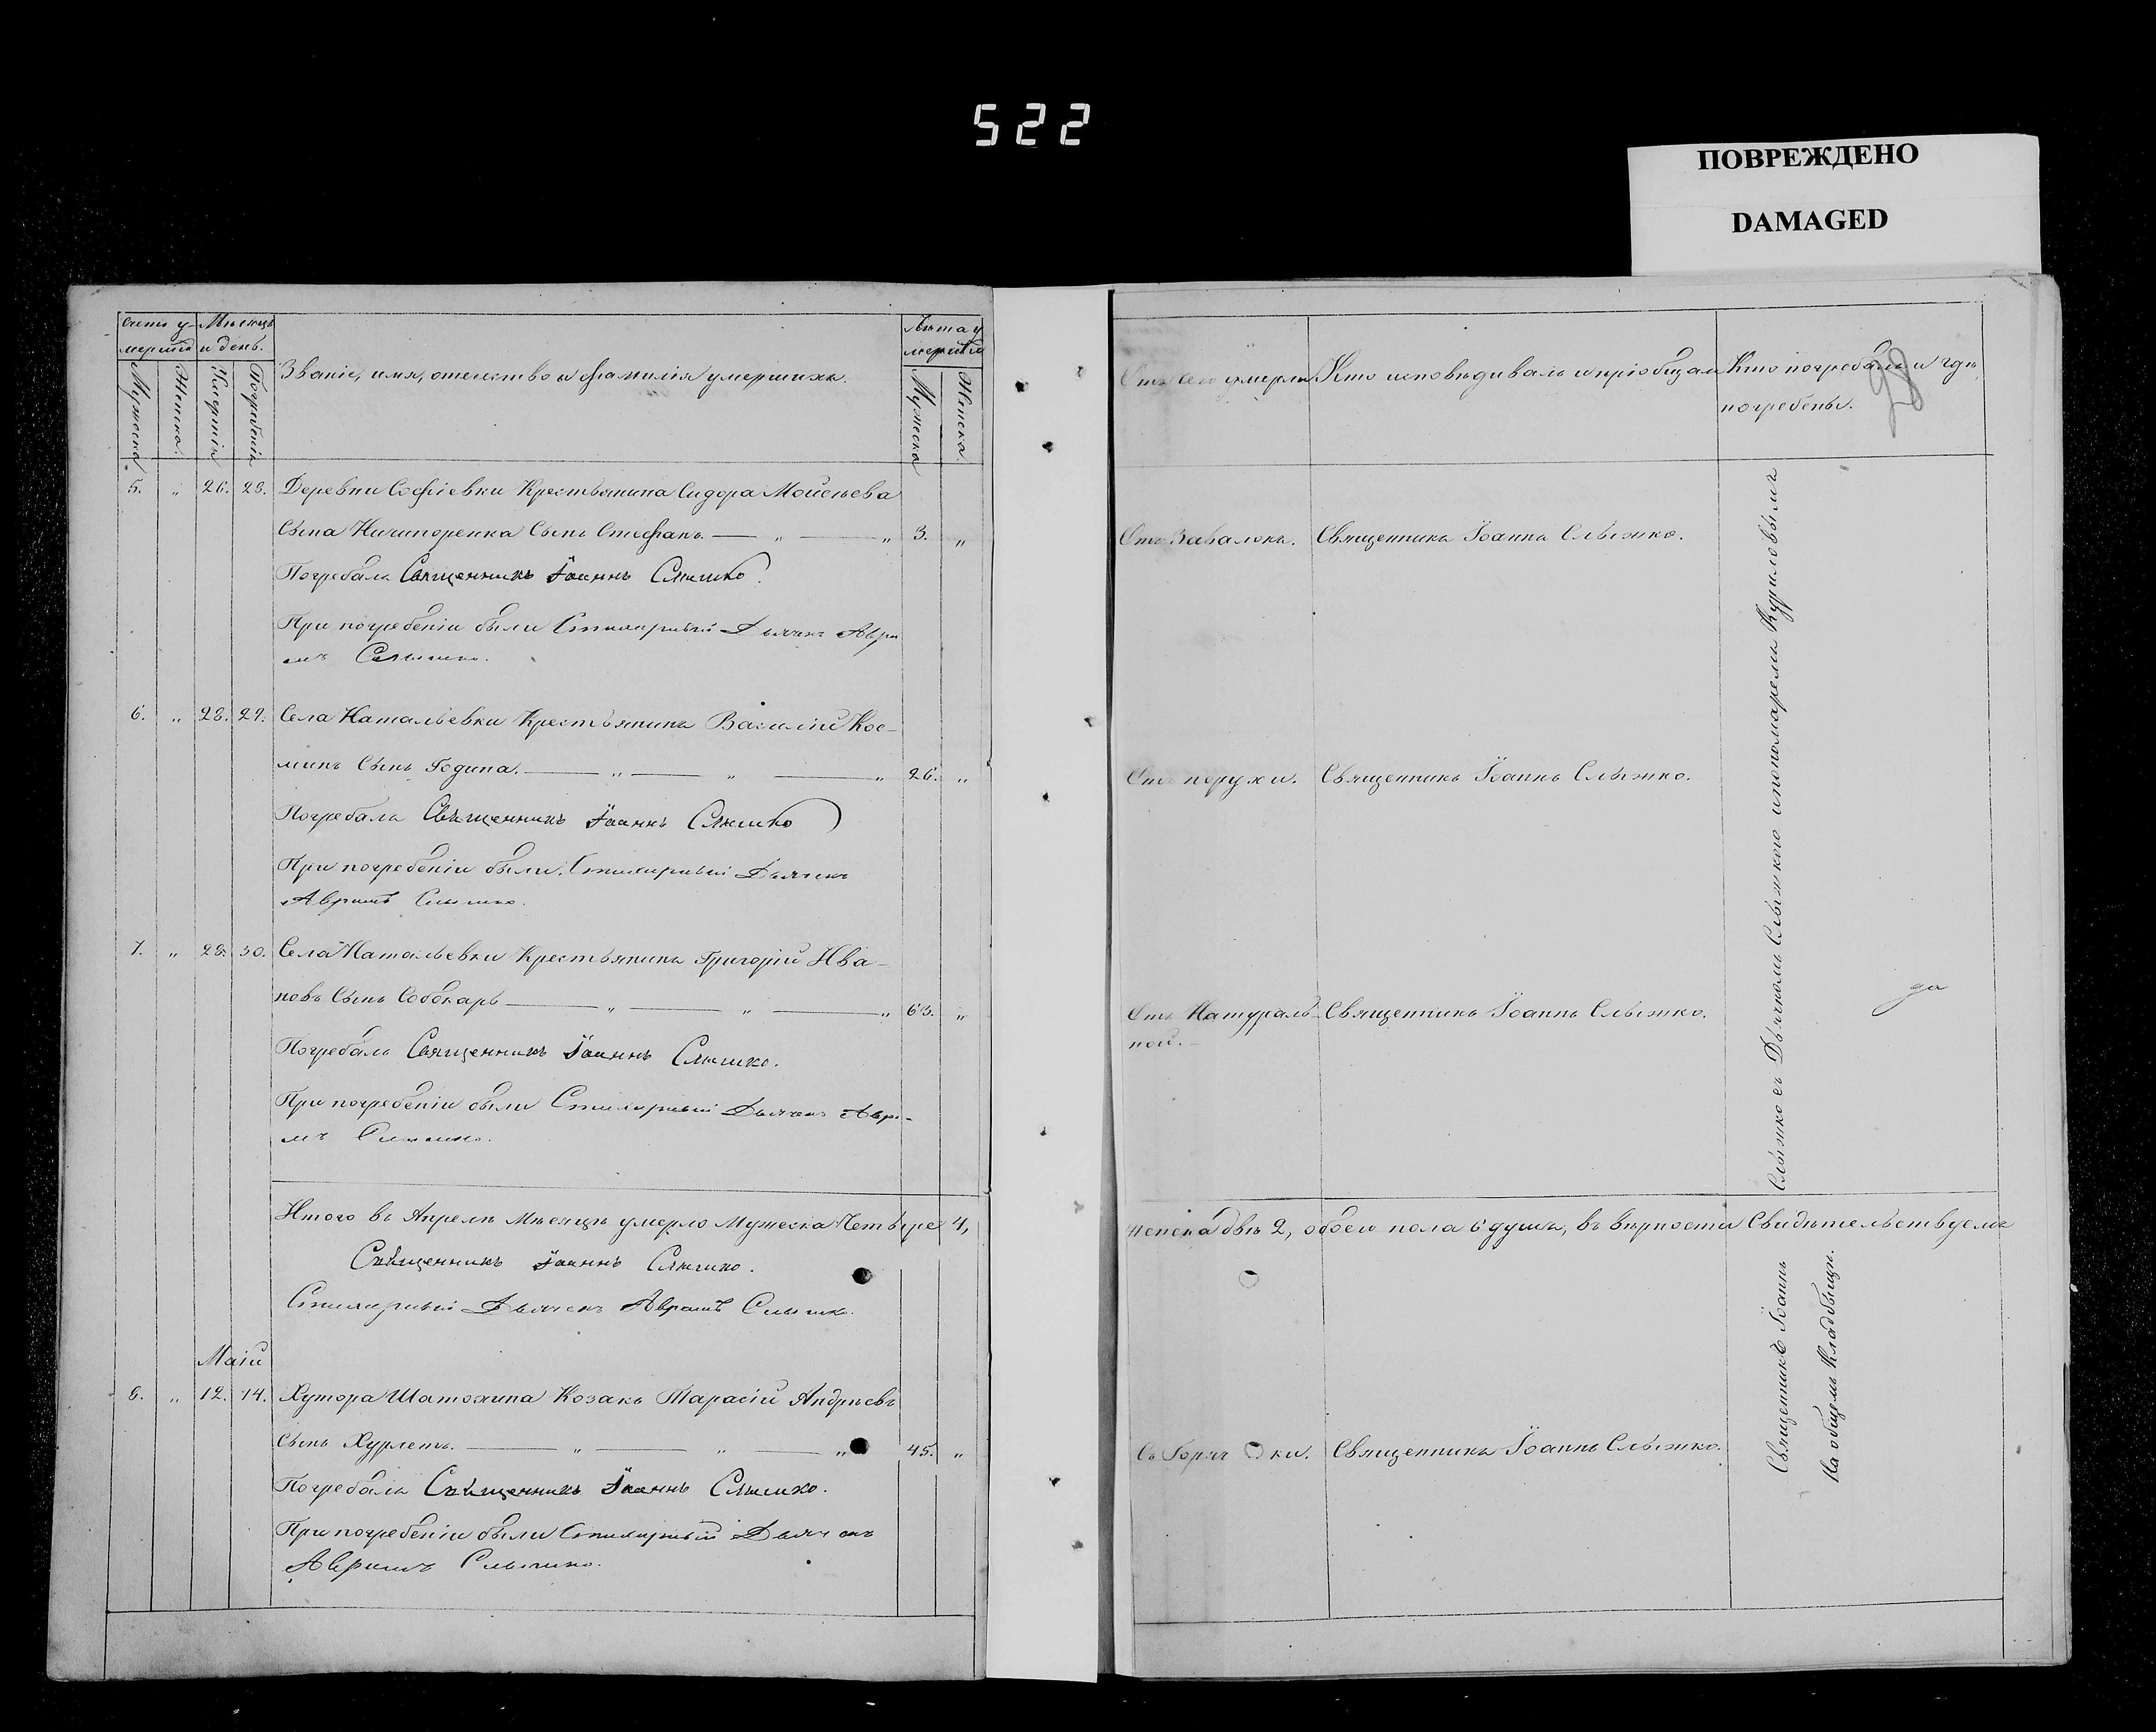 522
ПОВРЕЖДЕНО
DAMAGED
Счетъ у-
мершихъ
Мѣсяцъ
и день.
Мужеска
Женска.
Смертія
Погребенія
Званіе, имя, отечество и фамилія умершихъ.
Лѣта у
мершихъ
Мужеска
Женска.
5. „ 26. 28. Деревни Софіевки Крестьянина Сидора Мойсеева
Сына Ничипоренка Сынъ Стефанъ. — „ — „ 3. „
Погребалъ Священникъ Іоаннъ Слышко.
При погребеніи были Стихарный Дьячекъ Авра
мъ Слышко.
6. „ 28. 29. Села Натальевки Крестьянинъ Василій Кос-
минъ Сынъ Година. — „ — „ — „ 26. „
Погребалъ Священникъ Іоаннъ Слышко
При погребеніи были Стихарный Дьячекъ
Аврамъ Слышко.
7. „ 28. 30. Села Натальевки Крестьянинъ Григорій Ива-
новъ Сынъ Собокарь — „ — „ — „ 63. „
Погребалъ Священникъ Іоаннъ Слышко.
При погребеніи были Стихарный Дьячекъ Авра-
мъ Слышко.
Итого въ Апрелѣ Мѣсяцѣ умерло Мужеска Четыре 4,
Священникъ Іоаннъ Слышко.
Стихарный Дьячекъ Аврамъ Слышко.
Маій
8. „ 12. 14. Хутора Шатохина Козакъ Тарасій Андреевъ
Сынъ — „ — „ — „ 45. „
Погребалъ Священникъ Іоаннъ Слышко.
При погребеніи были Стихарный Дьячекъ
Аврамъ Слышко.
Отъ чего умерли
Кто исповѣдивалъ и пріобщалъ
Кто погребалъ и гдѣ
погребены.
28
Отъ Завалокъ. Священникъ Іоаннъ Слышко.
Отъ порухи. Священникъ Іоаннъ Слышко.
Отъ Натураль-
ной. Священникъ Іоаннъ Слышко.
да
женска двѣ 2, обоего пола 6 душъ, въ вѣрности Свидѣтельствуемъ
Съ ки. Священникъ Іоаннъ Слышко.
Священникъ Іоаннъ
Слышко съ Дьячкомъ Слышкою и пономаремъ Куриловымъ
На общемъ Кладбищи.